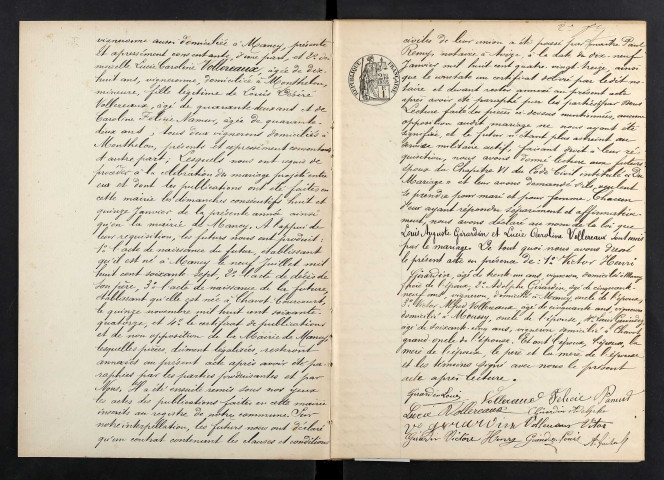 vigneronne aussi domiciliée à Mancy, présente
et expressément consentante, d'une part, et De-
moiselle Lucie Caroline Vollereaux, âgée de dix-
huit ans, vigneronne, domiciliée à Monthelon,
mineure, fille légitime de Louis Désiré
Vollereaux, âgé de quarante deux ans et de
Caroline Félicie Namur, âgée de quarante-
deux ans, tous deux vignerons domiciliés à
Monthelon, présents et expressément consentants
d'autre part; Lesquels nous ont requis de
procéder à la célébration du mariage projeté entre
eux et dont les publications ont été faites en
cette mairie les dimanches consécutifs huit et
quinze janvier de la présente année ainsi
qu'en la mairie de Mancy. A l'appui de
leur réquisition, les futurs nous ont produit:
1° l'acte de naissance du futur, établissant
qu'il est né à Mancy le neuf juillet mil
huit cent soixante-sept, 2° l'acte de décès de
son père, 3° l'acte de naissance de la future,
établissant qu'elle est née à Chavot-Courcourt,
le quinze novembre mil huit cent soixante-
quatorze, et 4° le certificat de publications
et de non opposition de la Mairie de Mancy
lesquelles pièces, dûment légalisées, resteront
annexées au présent acte après avoir été pa-
raphées par les parties produisantes et par
Nous. Il a été ensuite remis sous nos yeux
les actes des publications faites en cette mairie
inscrits au registre de notre commune. Sur
notre interpellation, les futurs nous ont déclaré
qu'un contrat contenant les clauses et conditions
civiles de leur union a été passé par devant Maître Paul
Remy, notaire à Avize, à la date du dix-neuf
janvier mil huit cent quatre vingt treize, ainsi
que le constate un certificat délivré par ledit no-
taire et devant rester annexé au présent acte
après avoir été paraphé par les parties et par Nous
Lecture faite des pièces ci-dessus mentionnées, aucune
opposition audit mariage ne nous ayant été
signifiée, et le futur n'étant plus astreint au
service militaire actif, faisant droit à leur ré-
quisition, nous avons donné lecture aux futurs
époux du Chapitre VI du Code Civil intitulé « Du
Mariage » et leur avons demandé s'ils veulent
se prendre pour mari et pour femme, Chacun
d'eux ayant répondu séparément et affirmative-
ment, nous avons déclaré au nom de la loi que
Louis Auguste Girardin et Lucie Caroline Vollereaux sont unis
par le mariage. De tout quoi nous avons dressé
le présent acte en présence de: 1° Victor Henri
Girardin, âgé de trente ans, vigneron, domicilié à Mancy
frère de l'époux, 2° Adolphe Girardin, âgé de cinquante-
neuf ans, vigneron, domicilié à Mancy oncle de l'époux,
3° Victor Alfred Vollereaux, âgé de cinquante ans, vigneron
domicilié à Moussy, oncle de l'épouse, 4° Louis
âgé de soixante-cinq ans, vigneron domicilié à Chavot
grand oncle de l'épouse. Et ont l'époux, l'épouse, la
mère de l'époux, le père et la mère de l'épouse
et les témoins signé avec nous le présent
acte après Lecture.
Girardin Louis Vollereaux Félicie Namur
Lucie Vollereaux Girardin Adolphe
Vve Girardin Vollereaux Victor
Girardin Victor Henry Louis
RÉPUBLIQUE FRANÇAISE